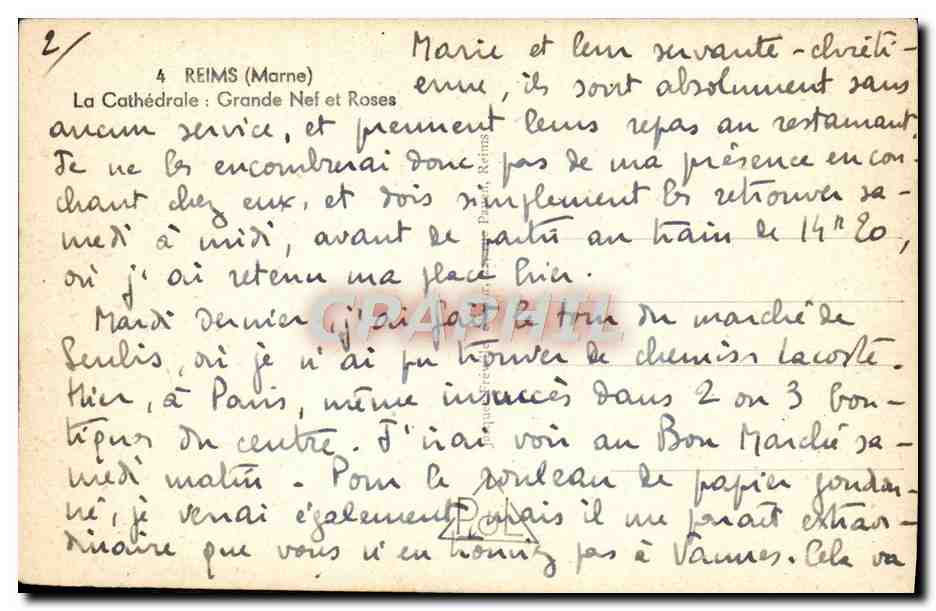 2/
4 REIMS (Marne)
La Cathédrale : Grande Nef et Roses
Marie et leur servante - chréti-
enne, ils sont absolument sans
aucun service, et prennent leurs repas au restaurant.
Je ne les encombrerai donc pas de ma présence en cou-
chant chez eux, et dois simplement les retrouver sa-
medi à midi, avant de partir au train de 14h20,
où j'ai retenu ma place hier.
Mardi dernier, j'ai fait le tour du marché de
Senlis, où je n'ai pu trouver de chemises Lacoste.
Hier, à Paris, même insuccès dans 2 ou 3 bou-
tiques du centre. J'irai voir au Bon Marché sa-
medi matin. - Pour le rouleau de papier goudon-
né, je verrai également mais il me parait extraor-
dinaire que vous n'en trouviez pas à Vannes. Cela va
CARTAPHIL
POL
Reims